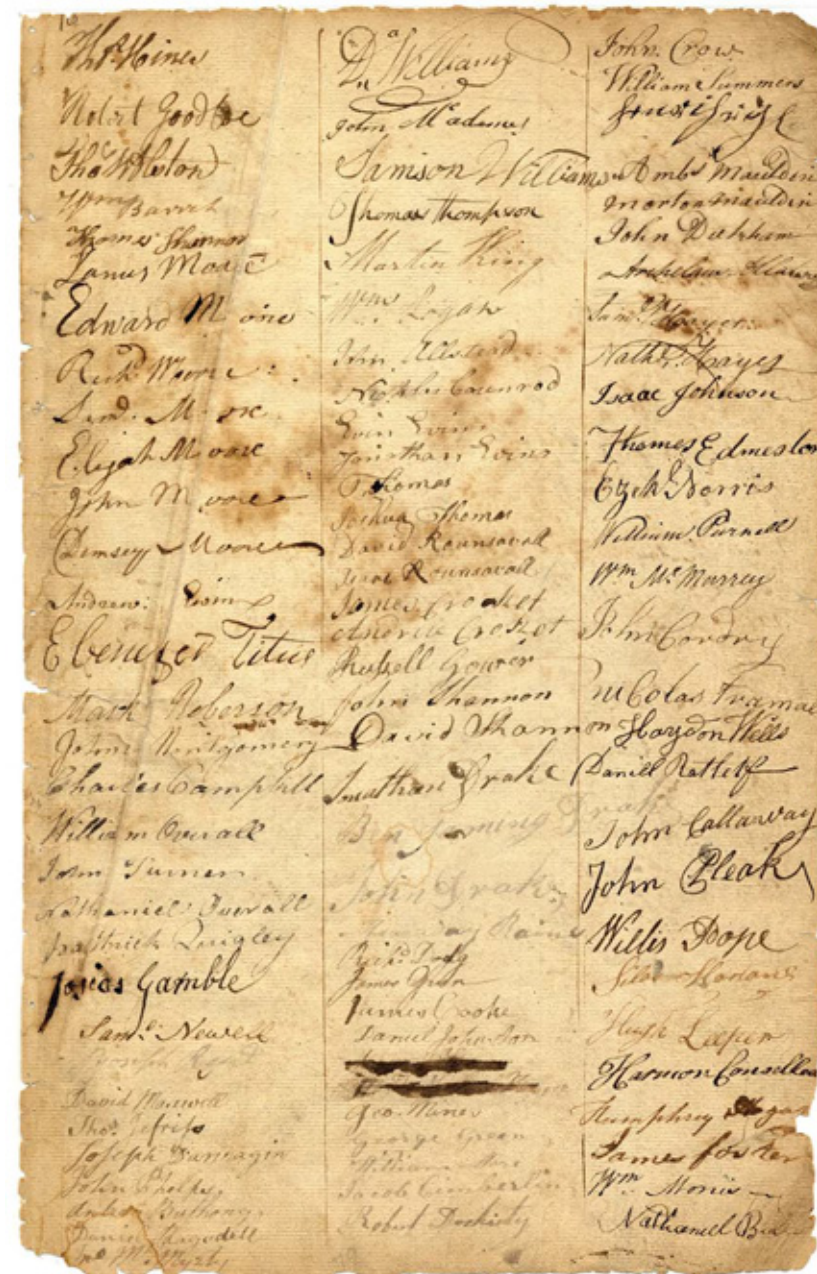 Thos. Hines
Robert Goodloe
Thos. W. Alston
Wm Barret
Thomas Shannon
James Moore
Edward Moore
Richd. Moore
Saml. Moore
Elijah Moore
John Moore
Demsey Moore
Andrew: Ewin
Ebenezer Titus
Mark Roberson
John Montgomery
Charles Campbell
William Overall
John Turner
Nathaniel Overall
Patrick Quigley
Josias Gamble
Saml. Newell
Joseph
David Maxwell
Thos. Jefriss
Joseph Dunnagin
John Phelps
Andrew Bushong
Daniel Ragsdell
Jno. McMyrty
Da. Williams
John McAdams
Samson Williams
Thomas Thompson
Martin King
Wm. Logan
John Allstead
Nicholas Counrod
Evin Evins
Jonathan Evins
Thomas
Joshua Thomas
David Rounsavall
Isaac Rounsavall
James Crocket
Andrew Crocket
Russell Gower
John Shannon
David Shannon
Jonathan Drake
Benjaming Drake
John Drake
Rains
Richd. Dody
James Green
James Cooke
Daniel Johnston
Geo. Mines
George Green
William
Jacob Cimberlin
Robert Dockerty
John Crow
William Summers
Ambs. Mauldin
Morton Mauldin
John Dunham
Archelaus
Saml. Hayes
Nathl. Hayes
Isaac Johnson
Thomas Edmeston
Ezek. Norris
William Purnell
Wm McMurrey
John Cordry
Nicolas Framal
Haydon Wells
Daniel Ratletf
John Callaway
John Pleak
Willis Pope
Silas Harlan
Hugh Leeper
Harmon Consellea
Humphrey Hogan
James foster
Wm. Morris
Nathaniel